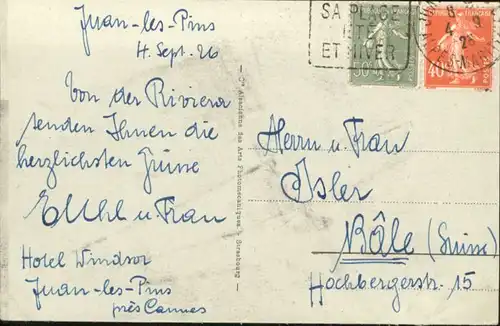 Juan-les-Pins
4. Sept. 26
Von der Riviera
senden Ihnen die
herzlichsten Grüsse
u Frau
Hotel Windsor
Juan-les-Pins
près Cannes
SA PLAGE
ÉTÉ
ET HIVER
50
40
Cie Alsacienne des Arts Photomécaniques Strasbourg
Herrn u. Frau
Isler
Bâle (Suisse)
Hochbergerstr. 15